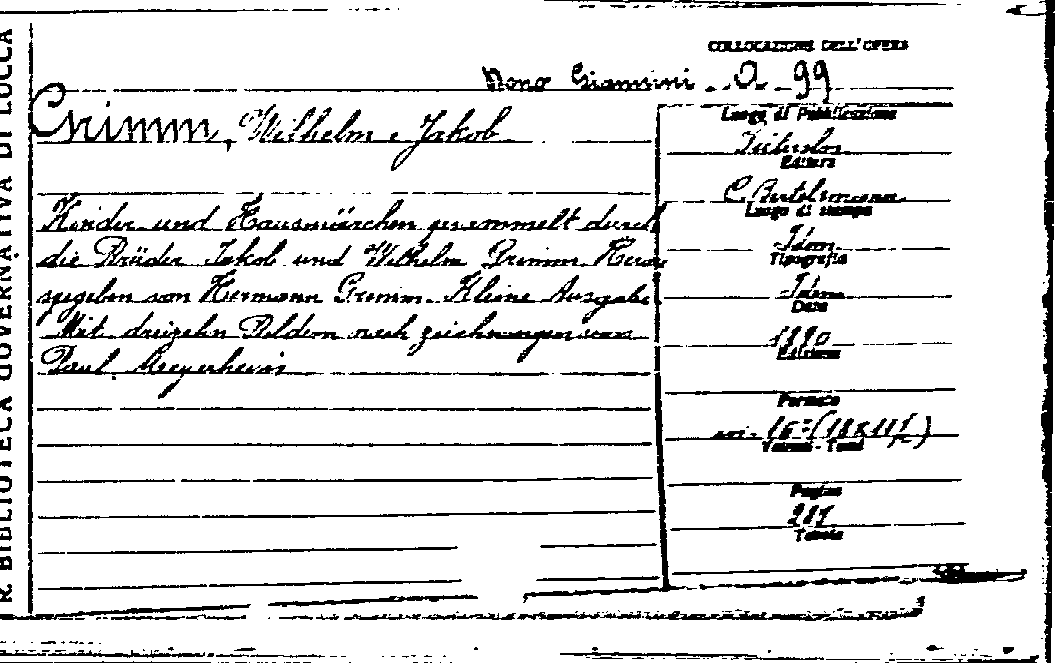 R. BIBLIOTECA GOVERNATIVA DI LUCCA
COLLOCAZIONE DELL'OPERA
Dono Giannini . O . 99
Grimm, Wilhelm e Jakob
Kinder und Hausmärchen gesammelt durch
die Brüder Jakob und Wilhelm Grimm. Herau
sgegeben von Hermann Grimm. Kleine Ausgabe.
Mit dreizehn Bildern nach zeichnungen von
Paul Meyerheim
Luogo di Pubblicazione
Editore
C. Bertelsmann
Luogo di stampa
Idem
Tipografia
Idem
Data
1890
Edizione
Formato
in-16º (18x11½)
Volumi - Tomi
Pagine
Tavole